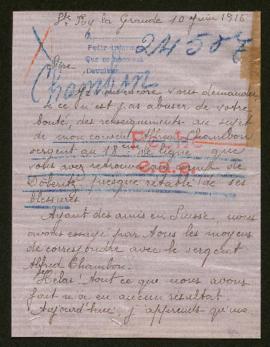 Ste Foy la Grande 10 Juin 1916
24587
Chambon
vous demander
si ce n'est pas abuser de votre
bonté, des renseignements au sujet
de mon cousin Alfred Chambon
sergent au de ligne que
vous avez retrouvé au camp de
presque rétabli de ses
blessures.
Ayant des amis en Suisse, nous
avons essayé par tous les moyens
de correspondre avec le sergent
Alfred Chambon.
Hélas! tout ce que nous avons
fait n'a eu aucun résultat
Aujourd'hui, j'apprends qu'un